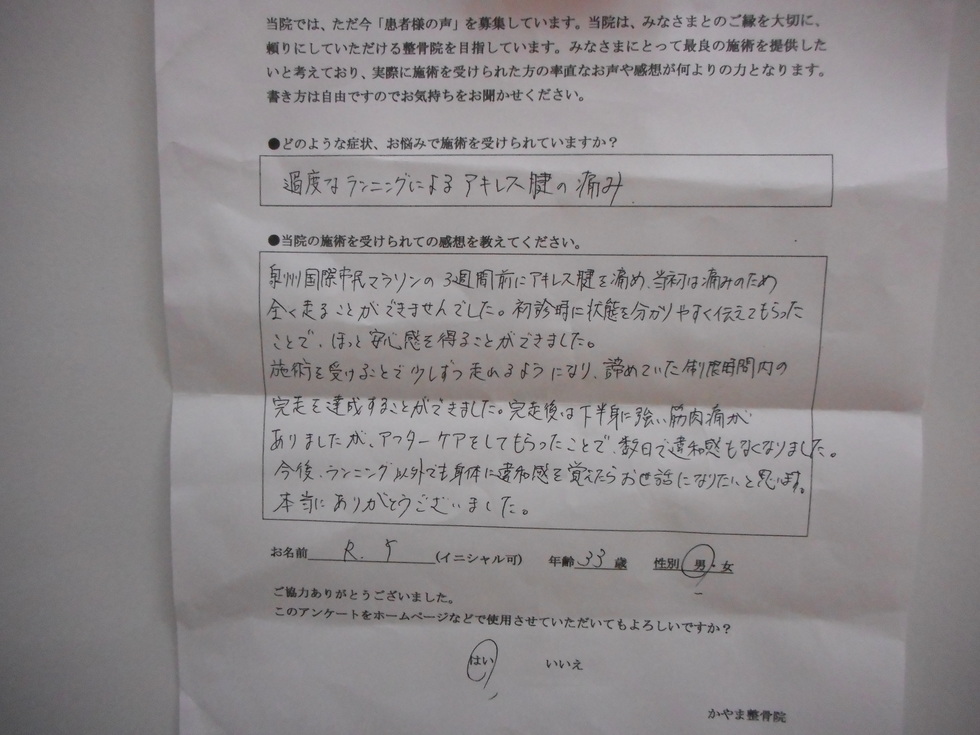 当院では、ただ今「患者様の声」を募集しています。当院は、みなさまとのご縁を大切に、
頼りにしていただける整骨院を目指しています。みなさまにとって最良の施術を提供した
いと考えており、実際に施術を受けられた方の率直なお声や感想が何よりの力となります。
書き方は自由ですのでお気持ちをお聞かせください。
●どのような症状、お悩みで施術を受けられていますか?
過度なランニングによるアキレス腱の痛み
●当院の施術を受けられての感想を教えてください。
泉州国際市民マラソンの3週間前にアキレス腱を痛め、当初は痛みのため
全く走ることができませんでした。初診時に状態を分かりやすく伝えてもらった
ことで、ほっと安心感を得ることができました。
施術を受けることで少しずつ走れるようになり、諦めていた制限時間内の
完走を達成することができました。完走後は下半身に強い筋肉痛が
ありましたが、アフターケアをしてもらったことで、数日で違和感もなくなりました。
今後、ランニング以外でも身体に違和感を覚えたらお世話になりたいと思います。
本当にありがとうございました。
お名前 R. (イニシャル可) 年齢 33 歳 性別 男・女
ご協力ありがとうございました。
このアンケートをホームページなどで使用させていただいてもよろしいですか?
はい いいえ
かやま整骨院